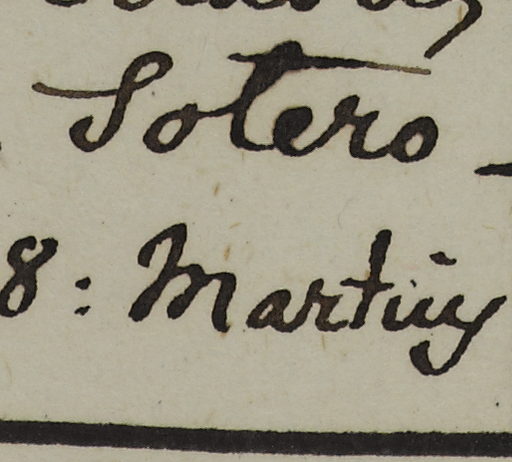 Sotero -
8: Martiij